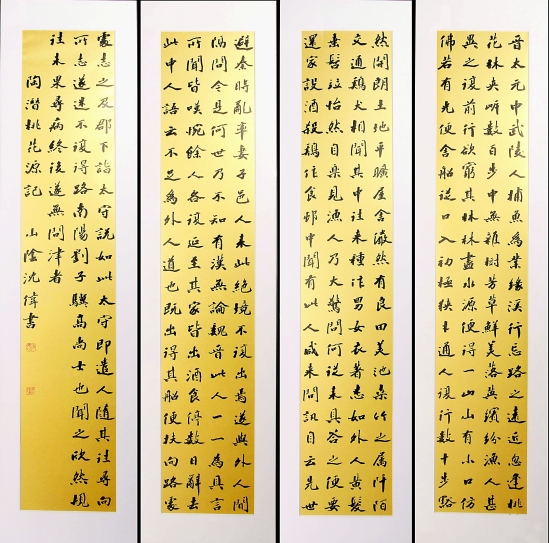 晋太元中武陵人捕魚為業緣溪行忘路之遠近忽逢桃
花林夾岸數百步中無雜樹芳草鮮美落英繽紛漁人甚
異之復前行欲窮其林林盡水源便得一山山有小口仿
佛若有光便舍船從口入初極狹才通人復行數十步豁
然開朗土地平曠屋舍儼然有良田美池桑竹之属阡陌
交通鷄犬相聞其中往来種作男女衣著悉如外人黄髮
垂髫並怡然自樂見漁人乃大驚問所從来具答之便要
還家設酒殺鷄作食邨中聞有此人咸来問訊自云先世
避秦時亂率妻子邑人来此絶境不復出焉遂與外人間
隔問今是何世乃不知有漢無論魏晋此人一一為具言
所聞皆嘆惋餘人各復延至其家皆出酒食停數日辭去
此中人語云不足為外人道也既出得其船便扶向路處
處志之及郡下詣太守説如此太守即遣人隨其往尋向
所志遂迷不復得路南陽劉子驥高尚士也聞之欣然規
往未果尋病終後遂無問津者
陶潛桃花源記 山陰沈偉書